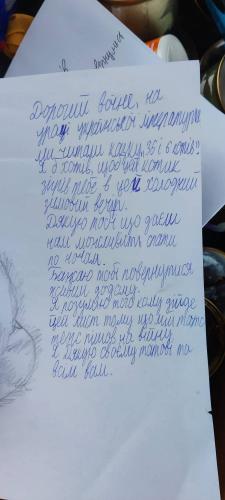 вернулися
Дорогий воїне, на
уроці української літератури
ми читали казку „36 і 6 котів".
Я б хотів, щоб цей котик
зігрів тебе в цей холодний
зимовий вечір.
Дякую тобі що даєш
нам можливість спати
по ночам.
Бажаю тобі повернутися
живим додому.
Я розумію того кому дійде
цей лист тому що мій тато
теж пішов на війну
Я дякую своєму татові та
вам вам.